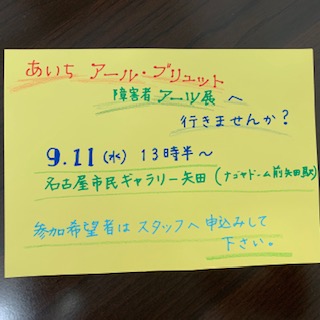 あいち アール・ブリュット
障害者 アーツ展 へ
行きませんか?
9.11(水) 13時半~
名古屋市民ギャラリー矢田(ナゴヤドーム前矢田駅)
参加希望者は スタッフへ 申込みして
下さい。